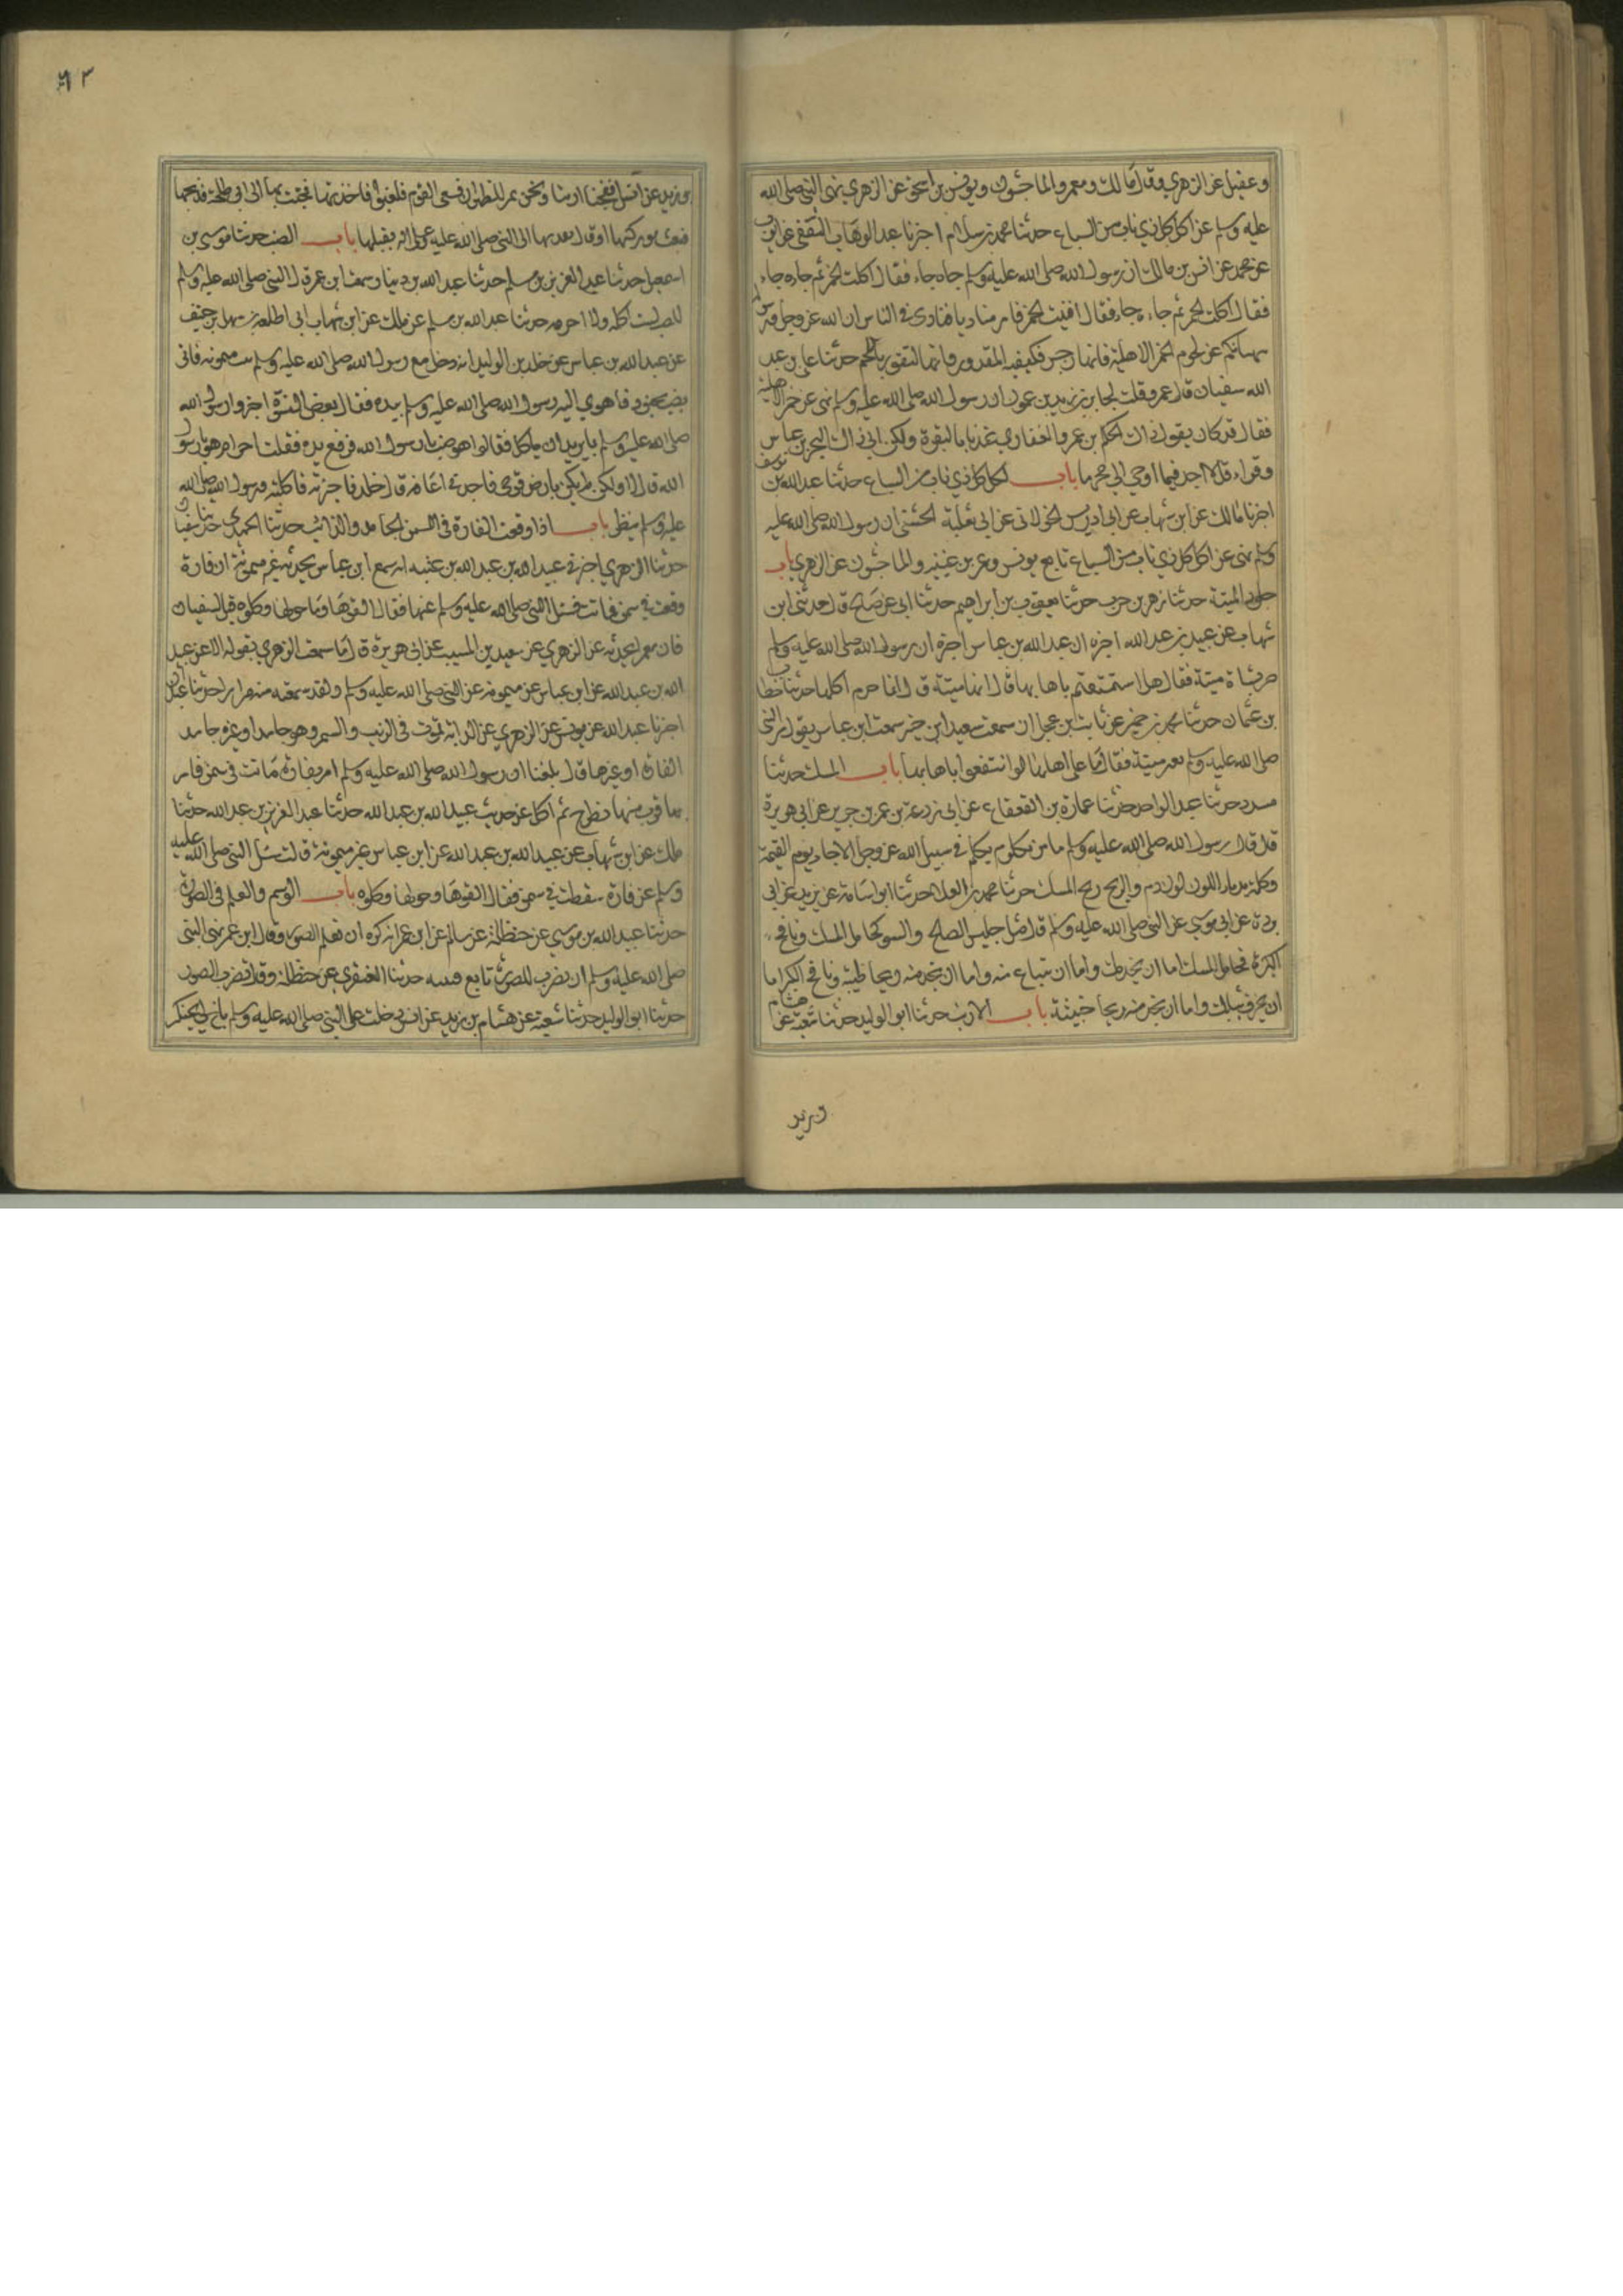 وعقيل عن الزهري وقال مالك ومعمر والماجشون ويونس بن اسحق عن الزهري نهى النبي صلى الله
عليه وسلم عن اكل كل ذي ناب من السباع حدثنا محمد بن سلام اخبرنا عبد الوهاب الثقفي عن ايوب
عن محمد عن انس بن مالك ان رسول الله صلى الله عليه وسلم جاءه جاء فقال اكلت الحمر ثم جاءه جاء
فقال اكلت الحمر ثم جاءه جاء فقال افنيت الحمر فامر مناديا فنادى في الناس ان الله عز وجل ورسوله
ينهيانكم عن لحوم الحمر الاهلية فانها رجس فكفيت القدور وانها لتفور باللحم حدثنا علي بن عبد
الله سفيان قال عمرو قلت لجابر بن زيد يزعمون ان رسول الله صلى الله عليه وسلم نهى عن حمر الاهلية
فقال قد كان يقول ذاك الحكم بن عمرو الغفاري عندنا بالبصرة ولكن ابى ذاك البحر بن عباس
وقراء قل لا اجد فيما اوحي الي محرما باب اكل كل ذي ناب من السباع حدثنا عبد الله بن يوسف
اخبرنا مالك عن ابن شهاب عن ابي ادريس الخولاني عن ابي ثعلبة الخشني ان رسول الله صلى الله عليه
وسلم نهى عن اكل كل ذي ناب من السباع تابع يونس ومعمر بن عيينه والماجشون عن الزهري باب
جلود الميتة حدثنا زهير بن حرب حدثنا يعقوب بن ابراهيم حدثنا ابي عن صالح قال حدثني ابن
شهاب عن عبيد بن عبد الله اخبره ان عبد الله بن عباس اخبره ان رسول الله صلى الله عليه وسلم
مر بشاة ميتة فقال هلا استمتعتم باهابها قالوا انها ميتة قال انما حرم اكلها حدثنا خطاب
بن عثمان حدثنا محمد بن حمير عن ثابت بن عجلان سمعت سعيد ابن جبير سمعت ابن عباس يقول مر النبي
صلى الله عليه وسلم بعنز ميتة فقال ما على اهلها لو انتفعوا باهابها باب المسك حدثنا
مسدد حدثنا عبد الواحد حدثنا عمارة بن القعقاع عن ابي زرعة بن عمرو بن جرير عن ابي هريرة
قال قال رسول الله صلى الله عليه وسلم ما من مكلوم يكلم في سبيل الله عز وجل الا جاء يوم القيمة
وكلمه يدما اللون لون دم والريح ريح المسك حدثنا محمد بن العلا حدثنا ابو اسامة عن بريد عن ابي
بردة عن ابي موسي عن النبي صلى الله عليه وسلم قال مثل جليس الصلح والسو كحامل المسك ونافخ
الكير فحامل المسك اما ان يحذيك واما ان تبتاع منه واما ان تجد منه ريحا طيبة ونافخ الكير اما
ان يحرق ثيابك واما ان تجد منه ريحا خبيثة باب الارنب حدثنا ابو الوليد حدثنا شعبة عن هشام
بن زيد
٦٣
بن زيد عن انس انفجنا ارنبا ونحن بمر الظهران فسعى القوم فلغبوا فاخذتها فجئت بها الى ابي طلحة فذبحها
فبعث بوركيها او قال بفخذيها الى النبي صلى الله عليه وسلم فقبلها باب الضب حدثنا موسى بن
اسمعيل حدثنا عبد العزيز بن مسلم حدثنا عبد الله بن دينار سمعت ابن عمر قال النبي صلى الله عليه وسلم
الضب لست اكله ولا احرمه حدثنا عبد الله بن مسلم عن ملك عن ابن شهاب ابي امامة بن سهل بن حنيف
عن عبد الله بن عباس عن خلد بن الوليد انه دخل مع رسول الله صلى الله عليه وسلم بيت ميمونة فاتى
بضب محنوذ فاهوي اليه رسول الله صلى الله عليه وسلم بيده فقال بعض النسوة اخبروا رسول الله
صلى الله عليه وسلم بما يريد ان ياكل فقالوا هو ضب يا رسول الله فرفع يده فقلت احرام هو يا رسول
الله قال لا ولكن لم يكن بارض قومي فاجدني اعافه قال خلد فاجتررته فاكلته ورسول الله صلى الله
عليه وسلم ينظر باب اذا وقعت الفارة في السمن الجامد والذائب حدثنا الحميدي حدثنا سفيان
حدثنا الزهري اخبرني عبيد الله بن عبد الله بن عتبه انه سمع ابن عباس يحدثه عن ميمونة ان فارة
وقعت في سمن فماتت فسئل النبي صلى الله عليه وسلم عنها فقال القوها وما حولها وكلوه قيل لسفيان
فان معمرا يحدثه عن الزهري عن سعيد بن المسيب عن ابي هريرة قال ما سمعت الزهري يقوله الا عن عبيد
الله بن عبد الله عن ابن عباس عن ميمونة عن النبي صلى الله عليه وسلم ولقد سمعته منه مرارا حدثنا عبدان
اخبرنا عبد الله عن يونس عن الزهري عن الدابة تموت في الزيت والسمن وهو جامد او غيره جامد
الفارة او غيرها قال بلغنا ان رسول الله صلى الله عليه وسلم امر بفارة ماتت في سمن فامر
بما قرب منها فطرح ثم اكل عن حديث عبيد الله بن عبد الله حدثنا عبد العزيز بن عبد الله حدثنا
ملك عن ابن شهاب عن عبيد الله بن عبد الله عن ابن عباس عن ميمونة قالت سئل النبي صلى الله عليه
وسلم عن فارة سقطت في سمن فقال القوها وحولها وكلوه باب الوسم والعلم في الصورة
حدثنا عبيد الله بن موسي عن حنظلة عن سالم عن ابن عمر انه كره ان تعلم الصور وقال ابن عمر نهى النبي
صلى الله عليه وسلم ان تضرب الصورة تابع قتيبه حدثنا العنقزي عن حنظلة وقال تضرب الصور
حدثنا ابو الوليد حدثنا شعبة عن هشام بن زيد عن انس دخلت على النبي صلى الله عليه وسلم باخ لي يحنكه